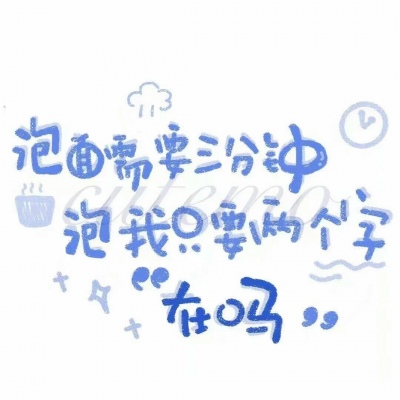 泡面需要三分钟
泡我只要两个字
“在吗”
cutemo